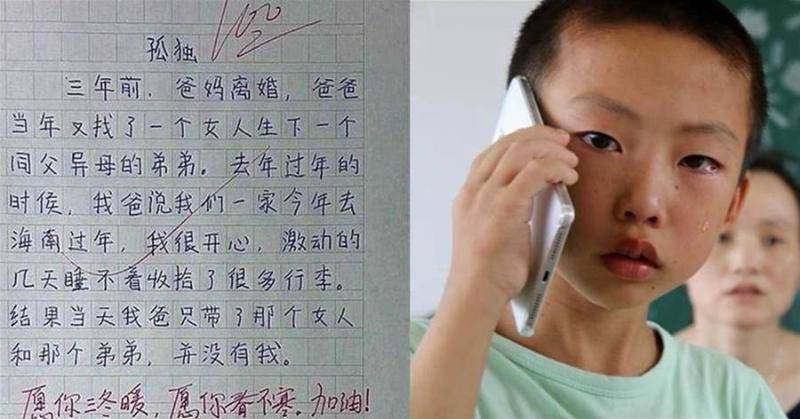 100
孤独
三年前，爸妈离婚，爸爸
当年又找了一个女人生下一个
同父异母的弟弟。去年过年的
时候，我爸说我们一家今年去
海南过年，我很开心，激动的
几天睡不着收拾了很多行李。
结果当天我爸只带了那个女人
和那个弟弟，并没有我。
愿你三冬暖，愿你春不寒。加油！